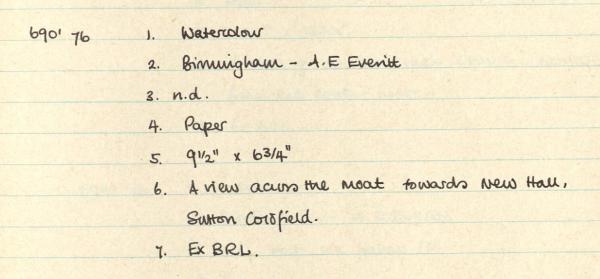 690' 76 1. Watercolour
2. Birmingham - A.E Everitt
3. n.d.
4. Paper
5. 9 1/2" x 6 3/4"
6. A view across the moat towards New Hall,
Sutton Coldfield.
7. Ex BRL.